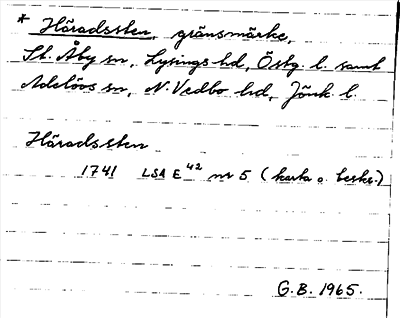 * Häradssten, gränsmärke,
St. Åby sn, Lysings hd, Östg. l. samt
Adelövs sn, N. Vedbo hd, Jönk. l.
Häradssten
1741 LSA E⁴² nr 5 (karta o. beskr.)
G.B. 1965.